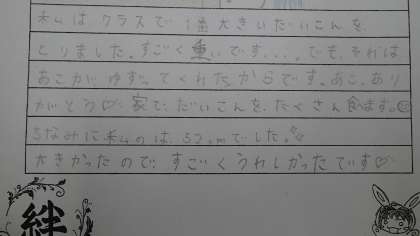 私は クラスで 1番 大きい だいこんを、
とりました。すごく 重いです....。でも、それは
あこが ゆずってくれたからです。あこ、あり
がとう♡ 家で、だいこんを、たくさん食ます。
ちなみに私のは、52cmでした。
大きかったので すごくうれしかったです♡
絆